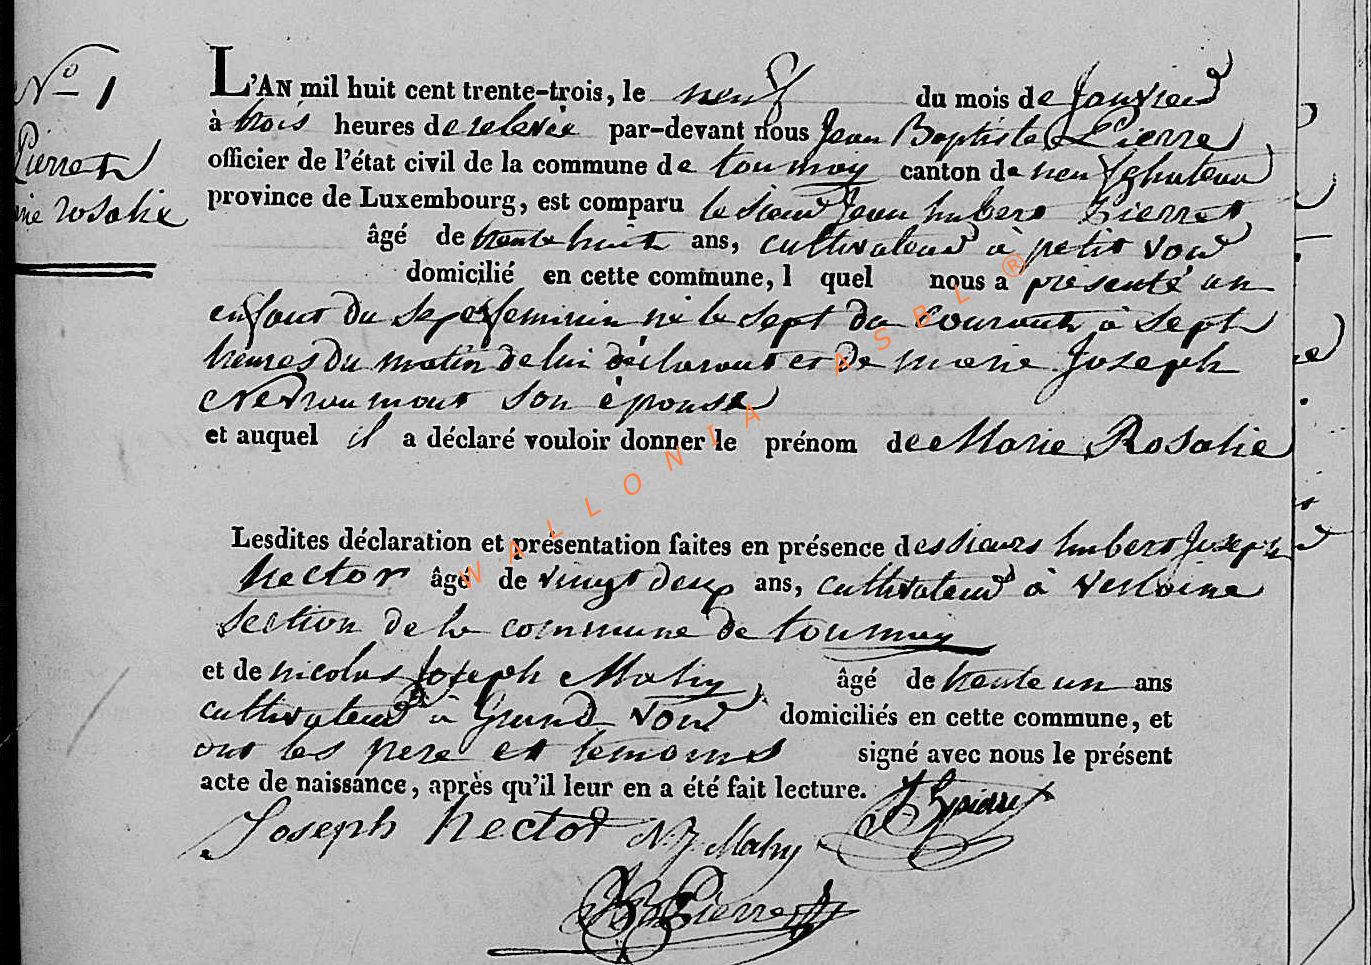 N° 1
Pierret
rie rosalie
L'AN mil huit cent trente-trois, le neuf du mois de Janvier
à trois heures de relevée par-devant nous Jean Baptiste Pierre
officier de l'état civil de la commune de tournay canton de neufchateau
province de Luxembourg, est comparu le sieur Jean hubert Pierret
âgé de trente huit ans, cultivateur à petit voir
domicilié en cette commune, l quel nous a présenté un
enfant du sexe feminin né le sept du courant à sept
heures du matin de lui déclarant et de marie Joseph
son épouse
et auquel il a déclaré vouloir donner le prénom de Marie Rosalie
Lesdites déclaration et présentation faites en présence des sieurs hubert Joseph
hector âgé de vingt deux ans, cultivateur à verlaine
section de la commune de tournay
et de nicolas Joseph Mahy, âgé de trente un ans
cultivateur à Grand voir domiciliés en cette commune, et
ont les pere et temoins signé avec nous le présent
acte de naissance, après qu'il leur en a été fait lecture.
Joseph hector N. J. Mahy
WALLONIA ASBL ®